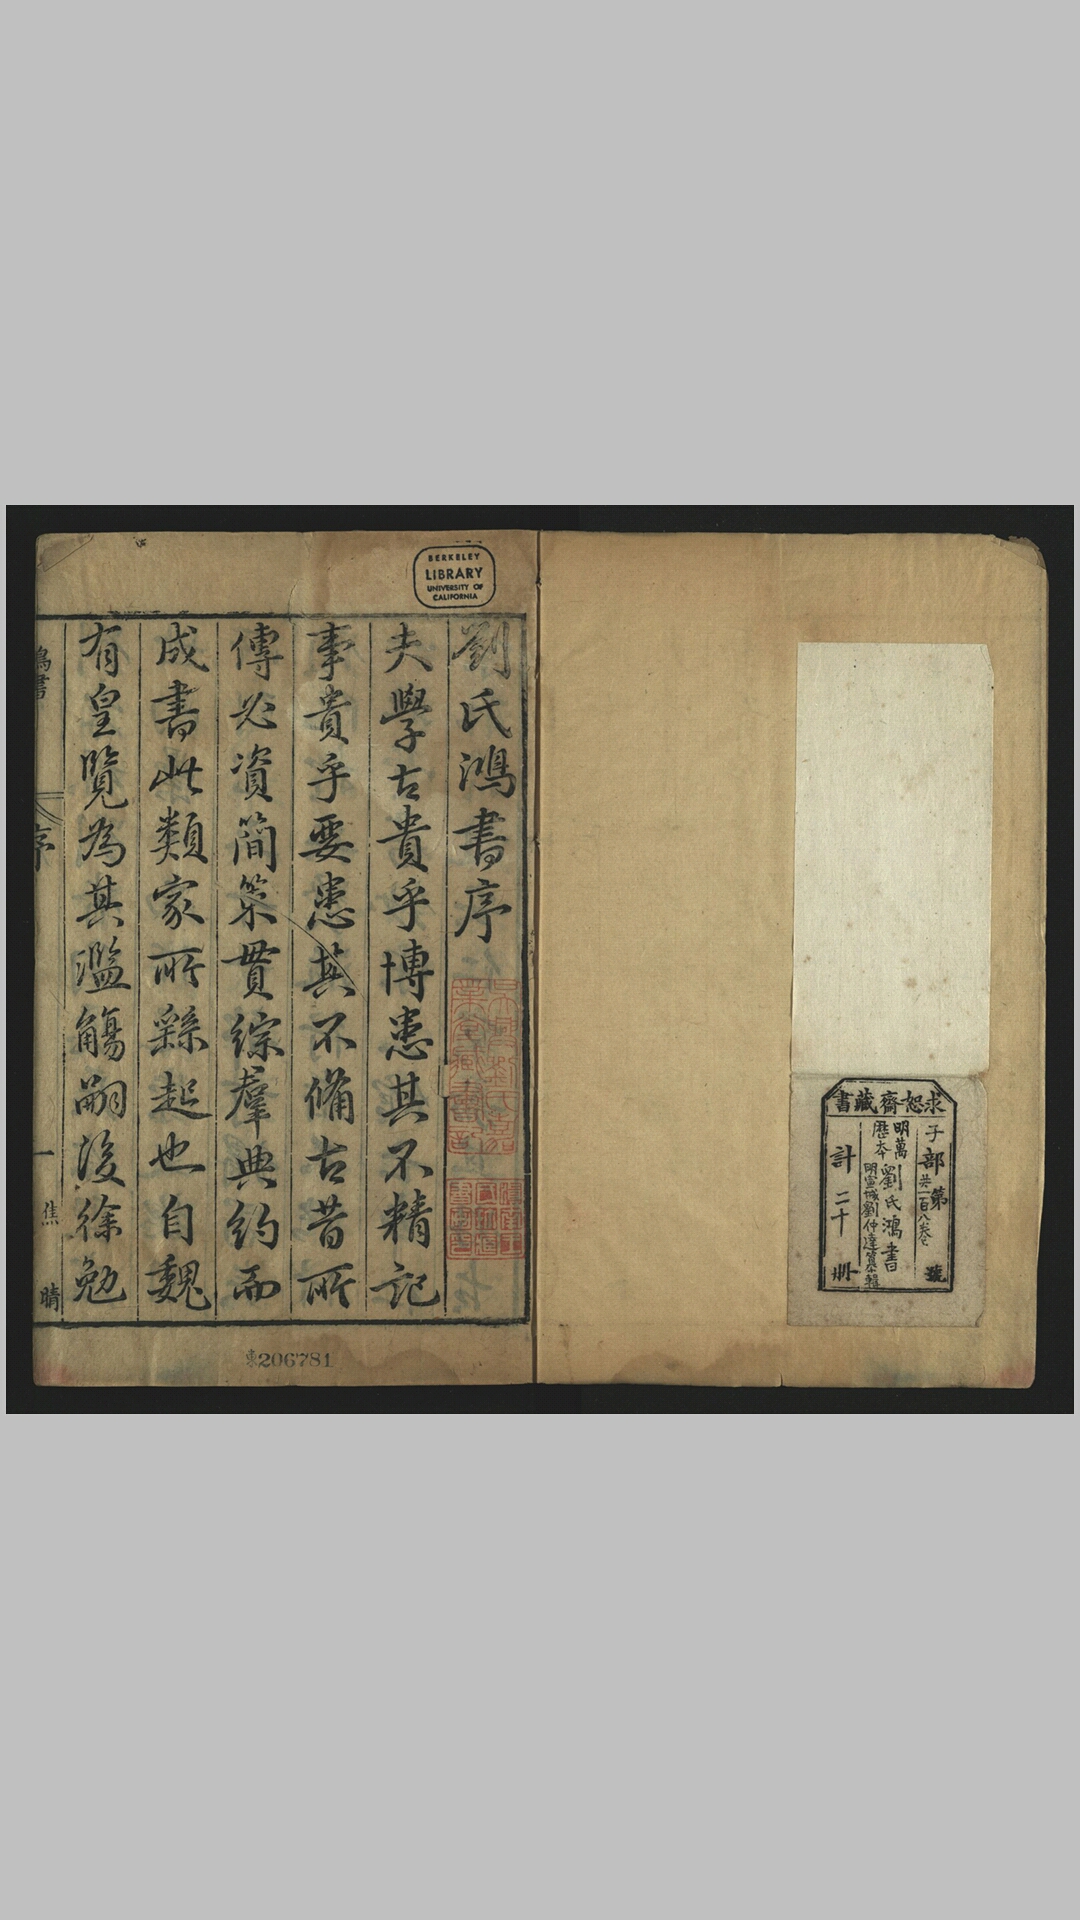 求恕齋藏書
子部第 號
共一百八卷
明萬
歷本
劉氏鴻書
明宣城劉仲達纂輯
計二十冊
BERKELEY
LIBRARY
UNIVERSITY OF
CALIFORNIA
劉氏鴻書序
夫學古貴乎博患其不精記
事貴乎要患其不備古昔所
傳必資簡策貫綜羣典約而
成書此類家所繇起也自魏
有皇覽為其濫觴嗣後徐勉
鴻書
序
一
焦
晴
206781